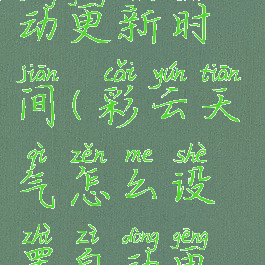 动更新时
jiān cǎi yún tiān
间(彩云天
qì zěn me shè
气怎么设
zhì zì dòng gēng
置自动更